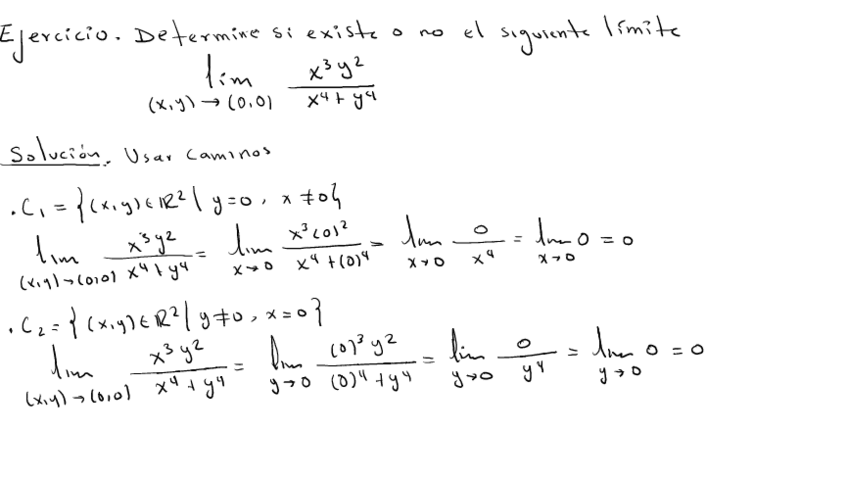 Ejercicio. Determine si existe o no el siguiente límite
lim (x,y)→(0,0) x³y² / x⁴+y⁴
Solución. Usar caminos
. C₁ = {(x,y)∈ℝ² | y=0, x≠0}
lim (x,y)→(0,0) x³y² / x⁴+y⁴ = lim x→0 x³(0)² / x⁴+(0)⁴ = lim x→0 0 / x⁴ = lim x→0 0 = 0
. C₂ = {(x,y)∈ℝ² | y≠0, x=0}
lim (x,y)→(0,0) x³y² / x⁴+y⁴ = lim y→0 (0)³y² / (0)⁴+y⁴ = lim y→0 0 / y⁴ = lim y→0 0 = 0